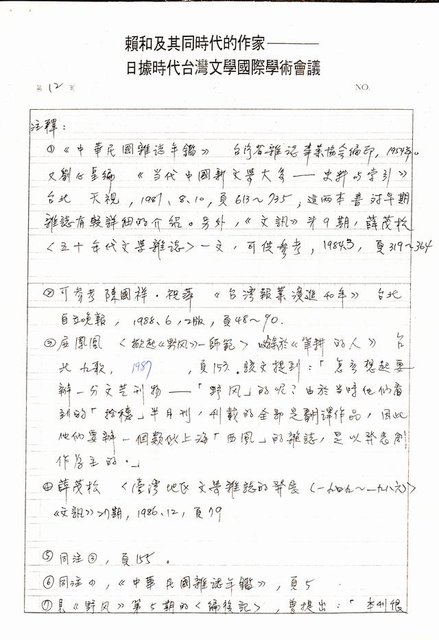 賴和及其同時代的作家————
日據時代台灣文學國際學術會議
第 12 頁 NO.
注釋：
①《中華民國雜誌年鑑》 台灣省雜誌事業協會編印，1954年。
又劉心皇編 《當代中國新文學大系——史料與索引》
台北 天視，1981、8、10，頁613～735，這兩本書對早期
雜誌有較詳細的介紹。另外，《文訊》第9期，薛茂松
〈五十年代文學雜誌〉一文，可供參考，1984.3，頁319～364
②可參考陳國祥、祝萍 《台灣報業演進40年》 台北
自立晚報，1988、6、2版，頁48～90.
③屈鳳凰 〈掀起《野風》 師範〉 《筆耕的人》 台
北 九歌， 1987 ，頁153. 該文提到：「怎麼想起要
辦一分文芸刊物——「野风」的呢？由於當時他們看
到的「拾穗」半月刊，刊載的全部是翻譯作品，因此
他們要辦一個類似上海「西風」的雜誌，是以發表創
作為主的。」
④薛茂松 〈臺灣地區文學雜誌的發展（一九四九～一九八六）〉
《文訊》27期，1986.12，頁79
⑤同注③，頁155.
⑥同注①，《中華民國雜誌年鑑》，頁5
⑦見《野风》第5期的〈編後記〉，曾提出：「本刊根